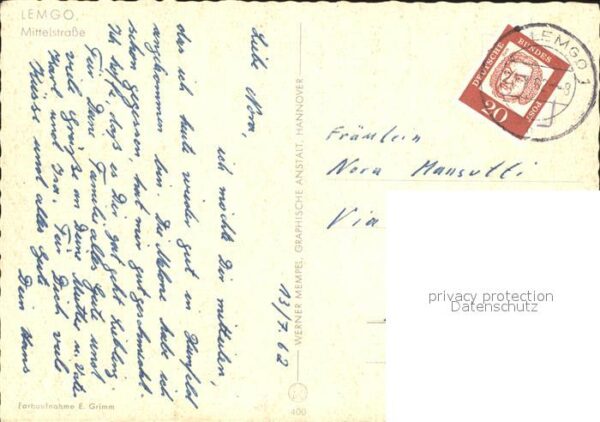 LEMGO,
Mittelstraße
13/7.62
Liebe Nora,
ich möchte Dir mitteilen,
das ich heute wieder gut in
angekommen bin. Die Melone habe ich
schon gegessen, hat mir gut geschmeckt.
Ich hoffe, dass es Dir gut geht Liebling.
Für Deine Familie alles Gute und
viele Grüße an Deine Mutter u. Vater
und Für Dich viele
Küsse und alles Gute
Dein Hans
Farbaufnahme E. Grimm
WERNER MEMPEL, GRAPHISCHE ANSTALT, HANNOVER
400
LEMGO 1
DEUTSCHE BUNDESPOST
20
Fräulein
Nora Mansutti
Via
privacy protection
Datenschutz